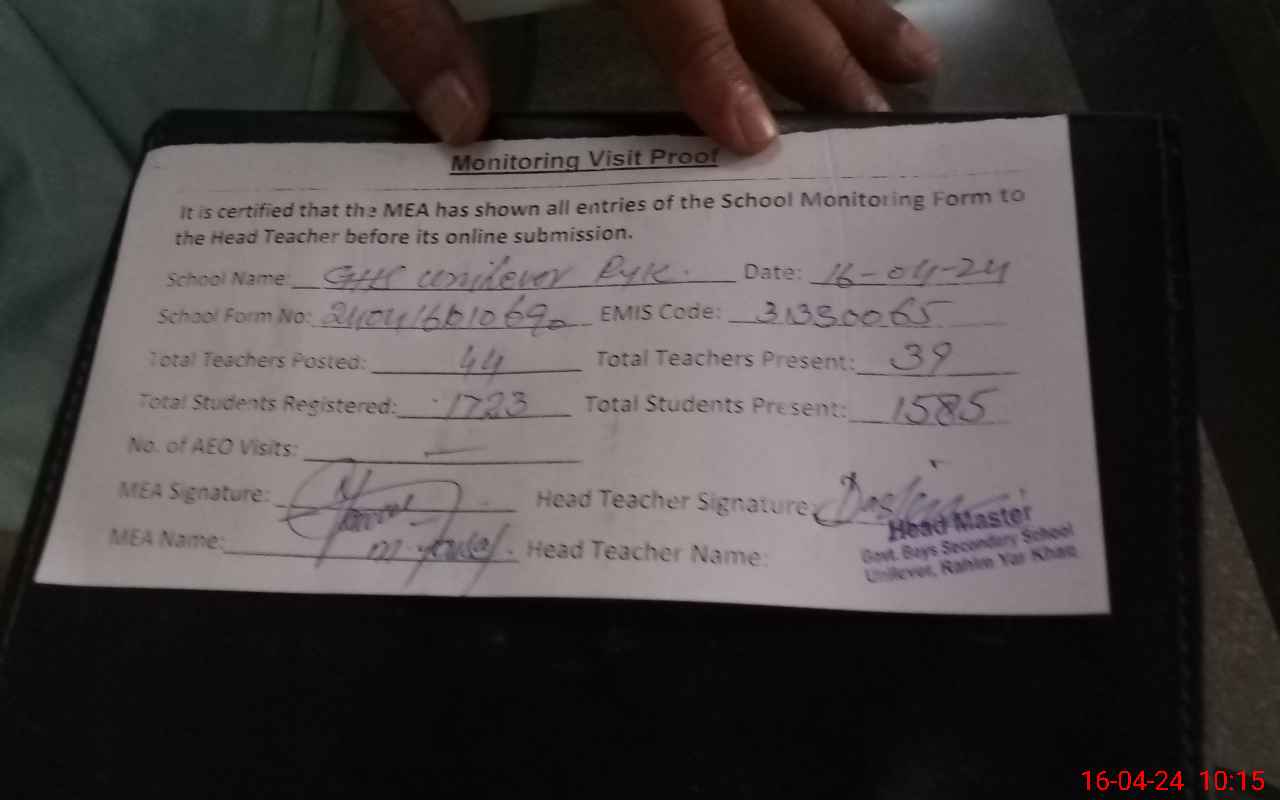 Monitoring Visit Proof
It is certified that the MEA has shown all entries of the School Monitoring Form to
the Head Teacher before its online submission.
School Name: GHS Unilever Ryk. Date: 16-04-24
School Form No: EMIS Code: 31330065
Total Teachers Posted: 44 Total Teachers Present: 39
Total Students Registered: 1723 Total Students Present: 1585
No. of AEO Visits: —
MEA Signature: Head Teacher Signature:
MEA Name: Head Teacher Name:
Head Master
Govt. Boys Secondary School
Unilever, Rahim Yar Khan
16-04-24 10:15